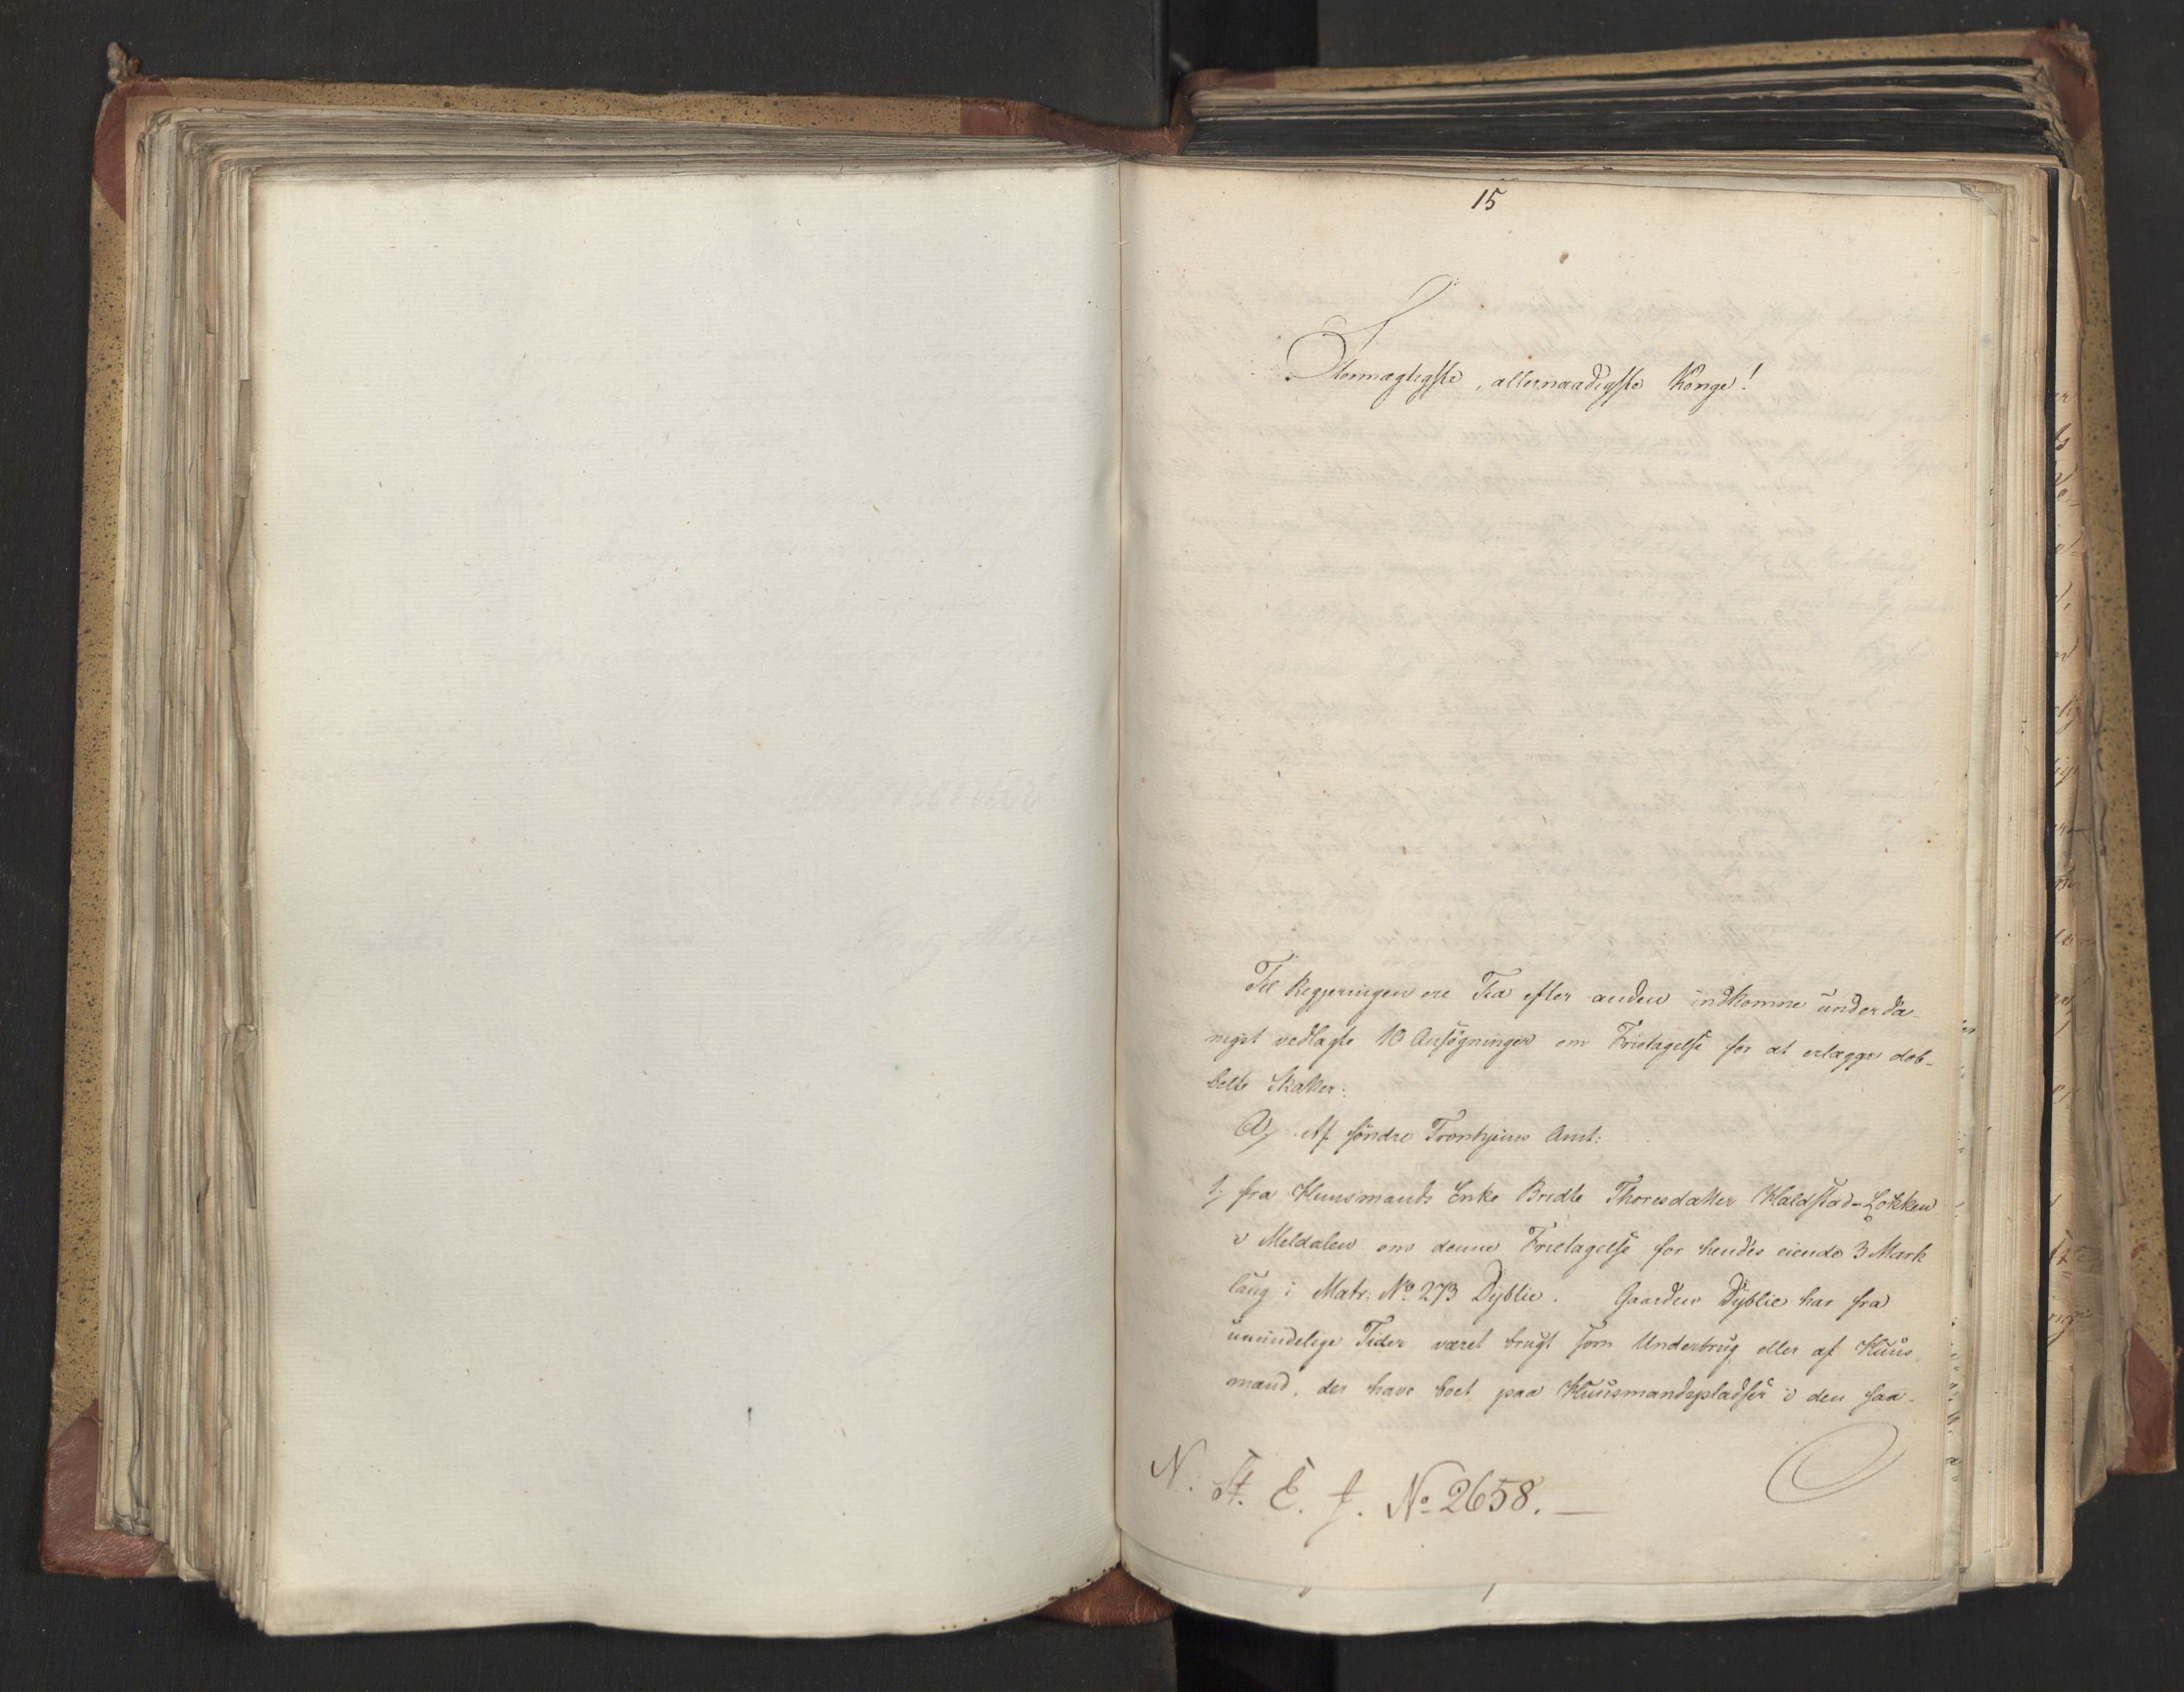 15
Stormægtigste, allernaadigste Konge!
Til Regjeringen ere Tid efter anden indkomne underda-
nigst vedlagte 10 Ansøgninger om Fritagelse for at erlægge dob-
belte Skatter:
A, Af søndre Tronhjems Amt:
1, fra Huusmands Enke Bridte Thoresdatter Kaldstad-Løkken
i Meldalen om denne Fritagelse for hendes eiende 3 Mark
laug i Matr: No 273 Dyblie. Gaarden Dyblie har fra
umindelige Tider været brugt som Underbrug eller af Huus
mænd, der have boet paa Huusmandspladser i den saa-
N. St. E. f. No 2658. —